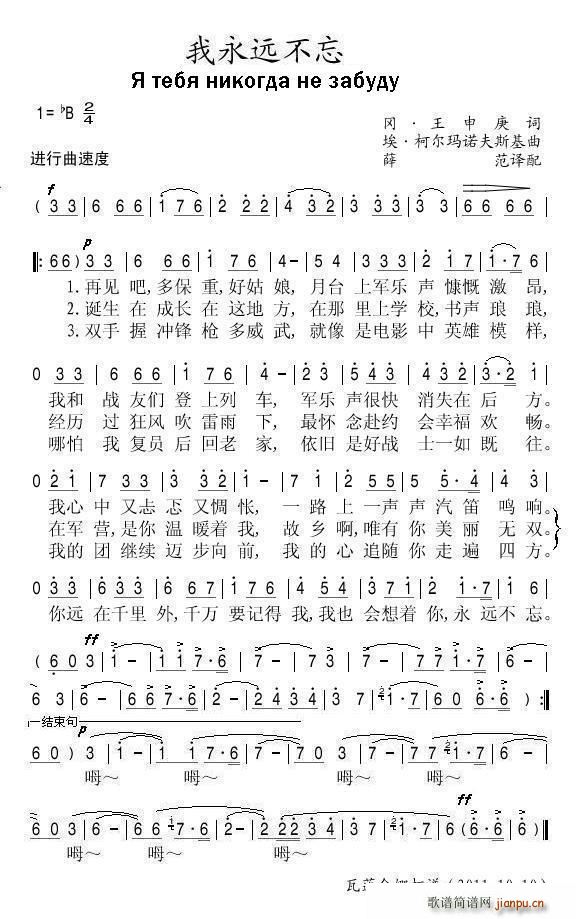 我永远不忘
Я тебя никогда не забуду
1=♭B 2/4
冈·王申庚词
埃·柯尔玛诺夫斯基曲
进行曲速度
薛 范译配
f
( 3 3 | 6 6 6 | 1 7 6 | 2 2 2 | 4 3 3 | 3 3 3 | 6 6 6 6 |
p
‖: 6 6 ) 3 3 | 6 6 6 | 1 7 6 | 4 - | 5 4 | 3 3 3 | 2 1 | 1·7 6 |
1.再见 吧,多保 重,好姑 娘, 月台 上军乐 声 慷慨 激 昂,
2.诞生 在 成长 在 这地 方, 在那 里上学 校,书声 琅 琅,
3.双手 握 冲锋 枪 多威 武, 就像 是电影 中 英雄 模 样,
0 3 3 | 6 6 6 | 1 7 6 | 4 - | 2 2 | 5 5 5 | 4 3 2 | 3·2 1 |
我和 战 友们 登 上列 车, 军乐 声很快 消失在 后 方。
经历 过 狂风 吹 雷雨 下, 最怀 念赴约 会幸福 欢 畅。
哪怕 我 复员 后 回老 家, 依旧 是好战 士一如 既 往。
0 2 1 | 7 3 3 | 3 2 1 | 1 - | 7 1 | 2 5 5 | 5 5·4 | 3 - |
我心 中 又忐 忑 又惆 怅, 一 路 上 一声 声 汽笛 鸣响。
在军 营,是你 温 暖着 我, 故 乡 啊,唯有 你 美丽 无 双。
我的 团 继续 迈 步向 前, 我 的 心 追随 你 走遍 四 方。
0 3 3 | 6 3 3 | 6·6 6 | 1 7 6 | 4 5 4 | 3 3 2 | 2 1·7 | 1 6 |
你远 在千里 外,千万 要记得 我,我也 会想着 你,永 远不 忘。
ff
( 6 0 3 | 1 - | 1 1 | 1 7·6 | 7 - | 7 3 | 7 - | 7 7 | 7 1·7 | 6 - |
6 3 | 6 - | 6 6 | 6 7·6 | 2 - | 2 4 3 | 3 7 | 1·7 | 6 0 6·6 ) :‖
结束句
p
6 0 ) 3 | 1 - | 1 1 | 1 7·6 | 7 - | 7 3 | 7 - | 7 7 | 7 1·7 | 6 - |
呣～ 呣～ 呣～
ff
6 0 3 | 6 - | 6 6 | 6 7·6 | 2 - | 2 2 3 4 | 3 4 | 1·7 | 6 6·6 | 6 0 ‖
呣～ 呣～
歌谱简谱网
jianpu.cn